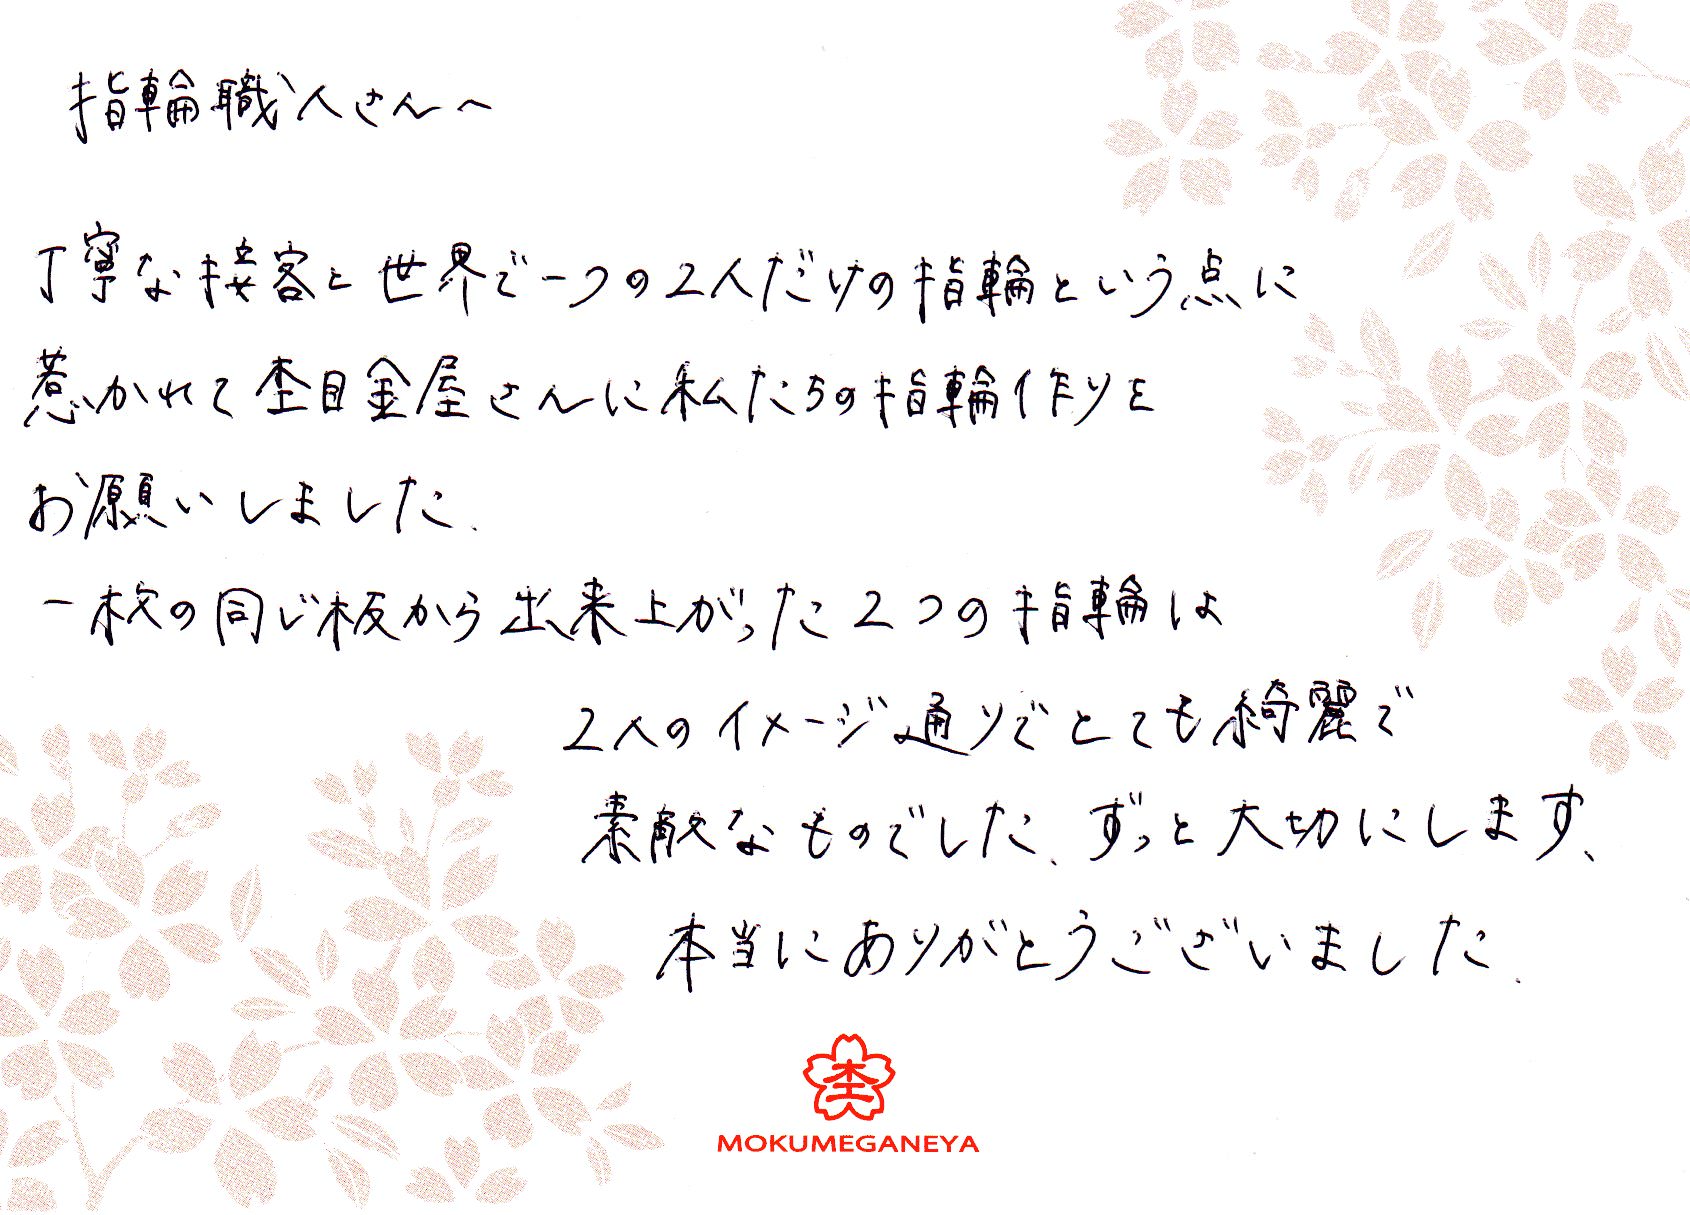 指輪職人さんへ
丁寧な接客と世界で一つの2人だけの指輪という点に
惹かれて杢目金屋さんに私たちの指輪作りを
お願いしました.
一枚の同じ板から出来上がった2つの指輪は
2人のイメージ通りでとても綺麗で
素敵なものでした、ずっと大切にします、
本当にありがとうございました.
杢
MOKUMEGANEYA